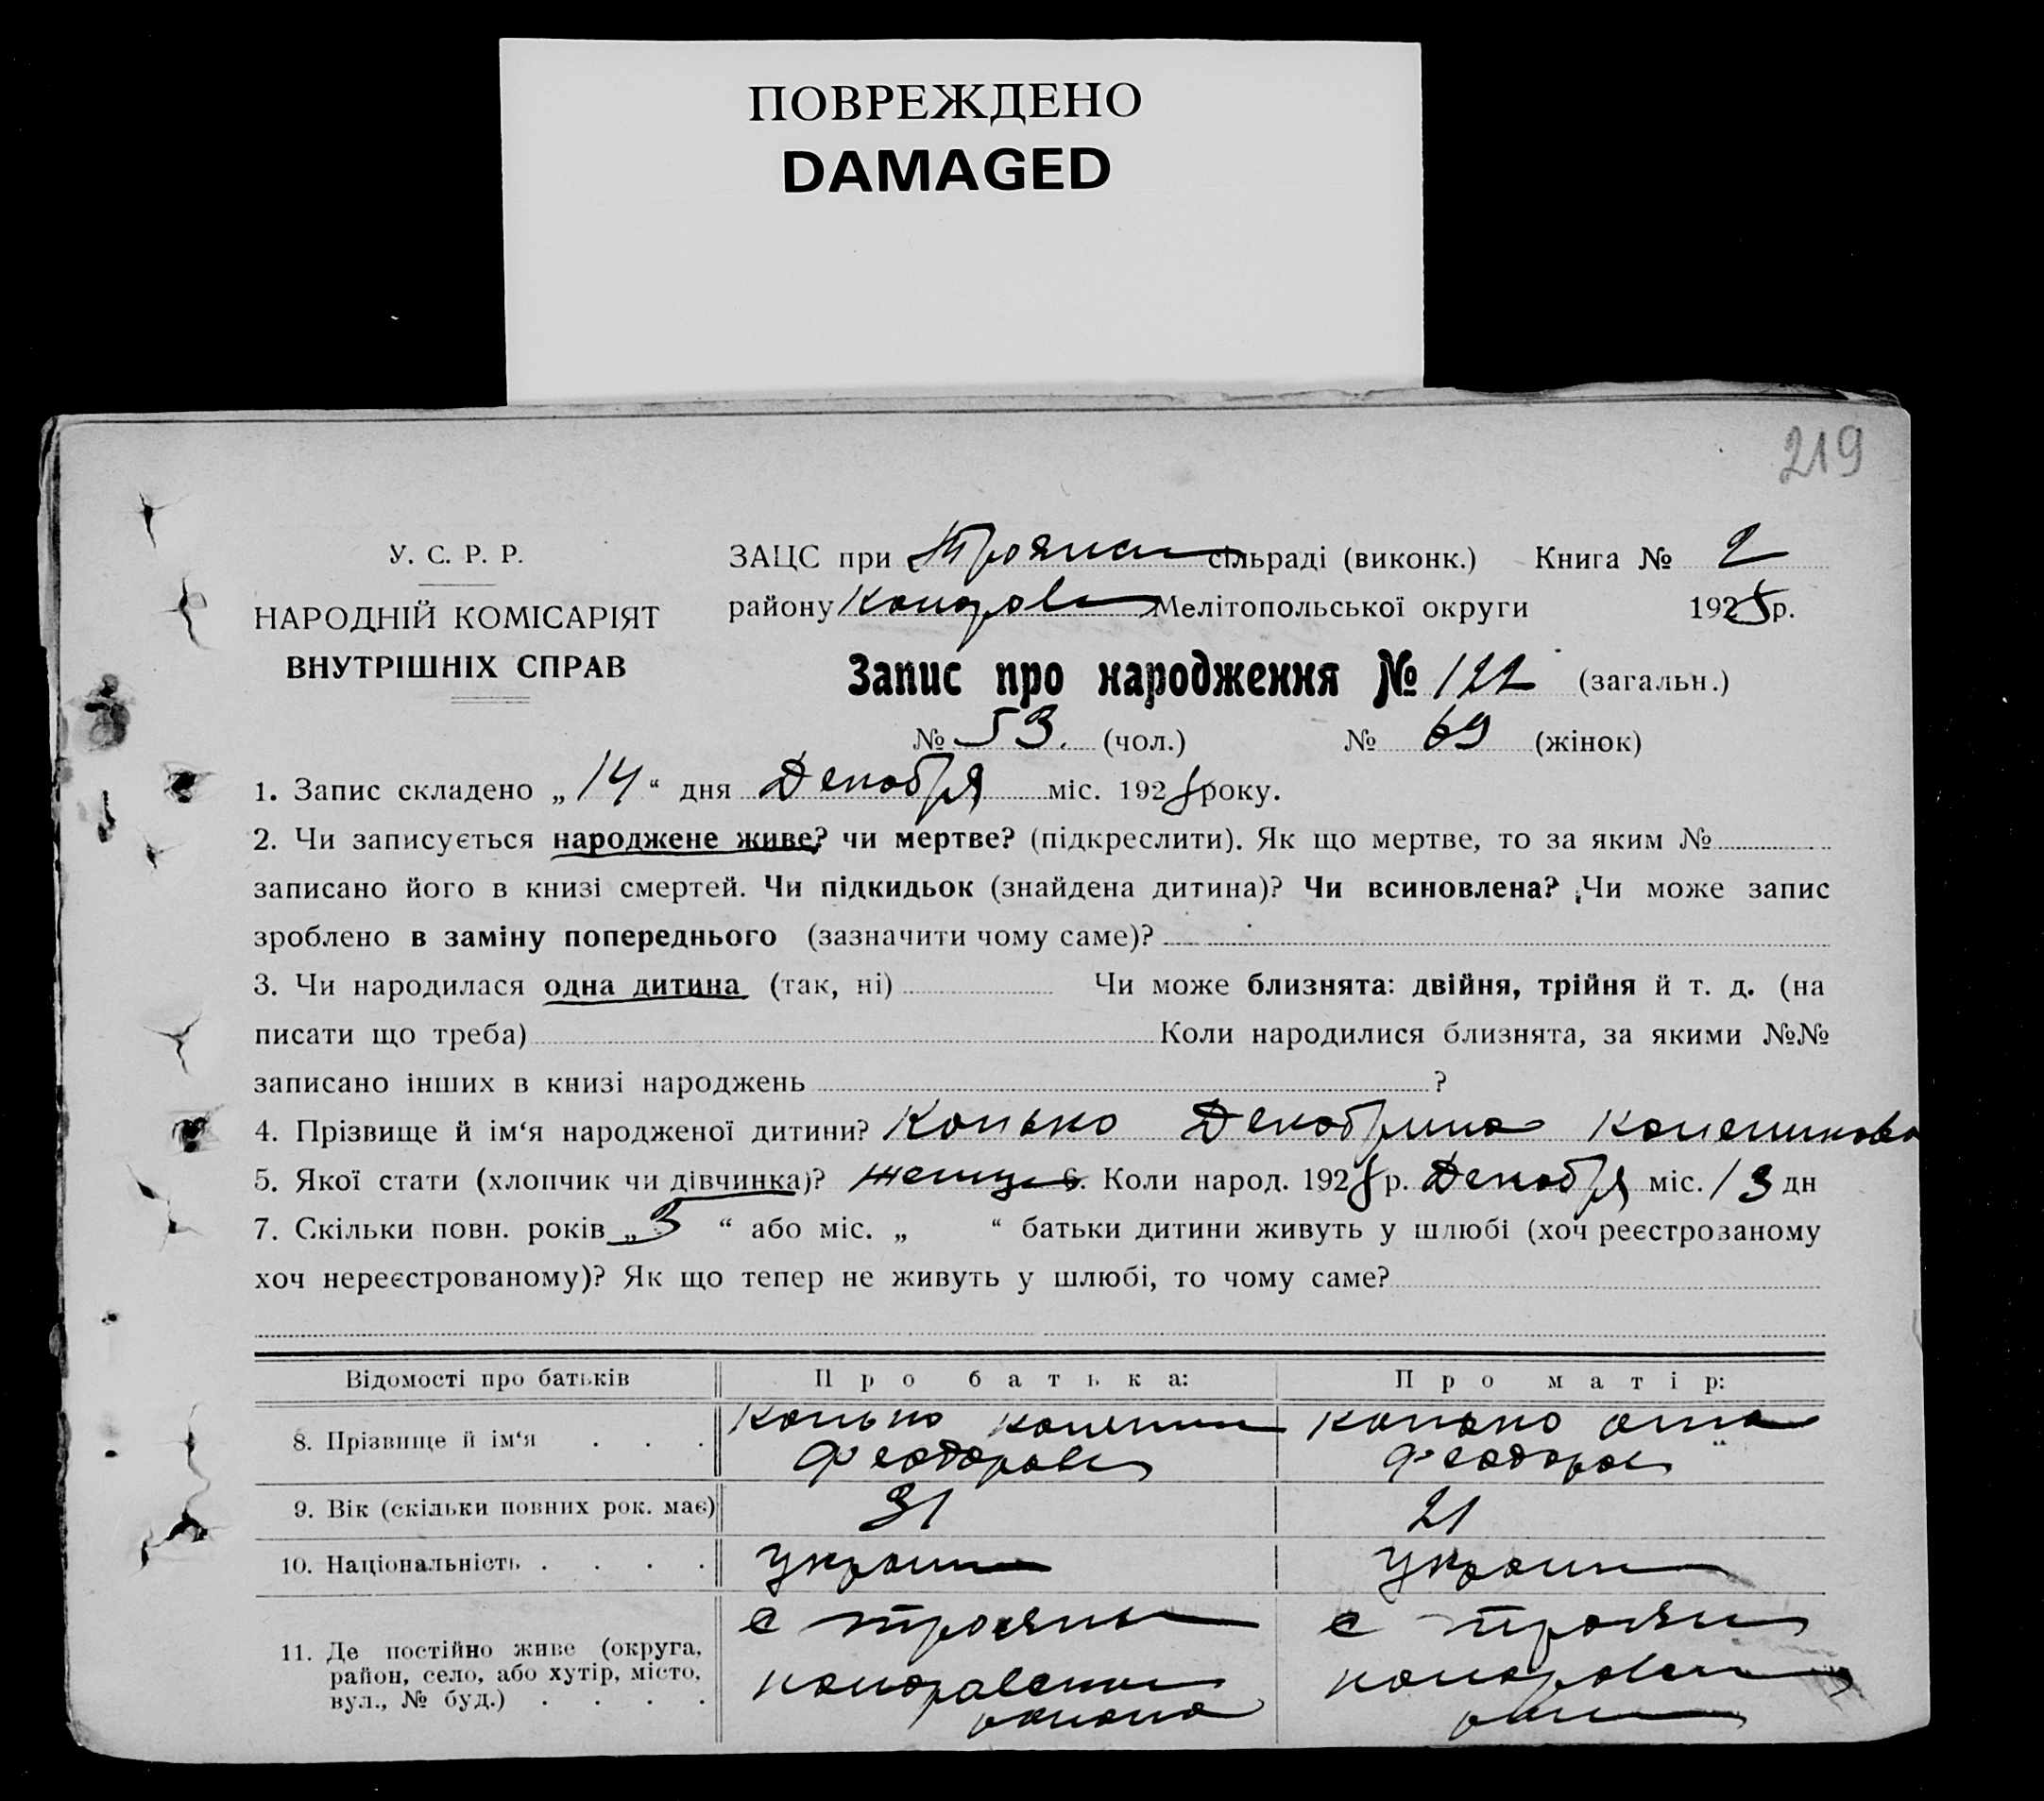 ПОВРЕЖДЕНО
DAMAGED
219
У. С. Р. Р.
НАРОДНІЙ КОМІСАРІЯТ
ВНУТРІШНІХ СПРАВ
ЗАЦС при Троянс сільраді (виконк.) Книга № 2
району Мелітопольської округи 1925р.
Запис про народження № 122 (загальн.)
№ 53. (чол.) № 69 (жінок)
1. Запис складено „ 14 “ дня Декабря міс. 192 року.
2. Чи записується народжене живе? чи мертве? (підкреслити). Як що мертве, то за яким №
записано його в книзі смертей. Чи підкидьок (знайдена дитина)? Чи всиновлена? Чи може запис
зроблено в заміну попереднього (зазначити чому саме)?
3. Чи народилася одна дитина (так, ні) Чи може близнята: двійня, трійня й т. д. (на
писати що треба) Коли народилися близнята, за якими №№
записано інших в книзі народжень ?
4. Прізвище й ім‘я народженої дитини? Копько Декабрина
5. Якої стати (хлопчик чи дівчинка)? 6. Коли народ. 192 р. Декабря міс. 13 дн
7. Скільки повн. років „ 3 “ або міс. „ “ батьки дитини живуть у шлюбі (хоч реєстрозаному
хоч нереєстрованому)? Як що тепер не живуть у шлюбі, то чому саме?
Відомості про батьків Про батька: Про матір:
8. Прізвище й ім‘я . . . Копько Копько
Феодоров Феодоров
9. Вік (скільки повних рок. має) 31 21
10. Національність . . . . Украин Украин
11. Де постійно живе (округа, с Трояны с Троян
район, село, або хутір, місто,
вул., № буд.) . . . . района